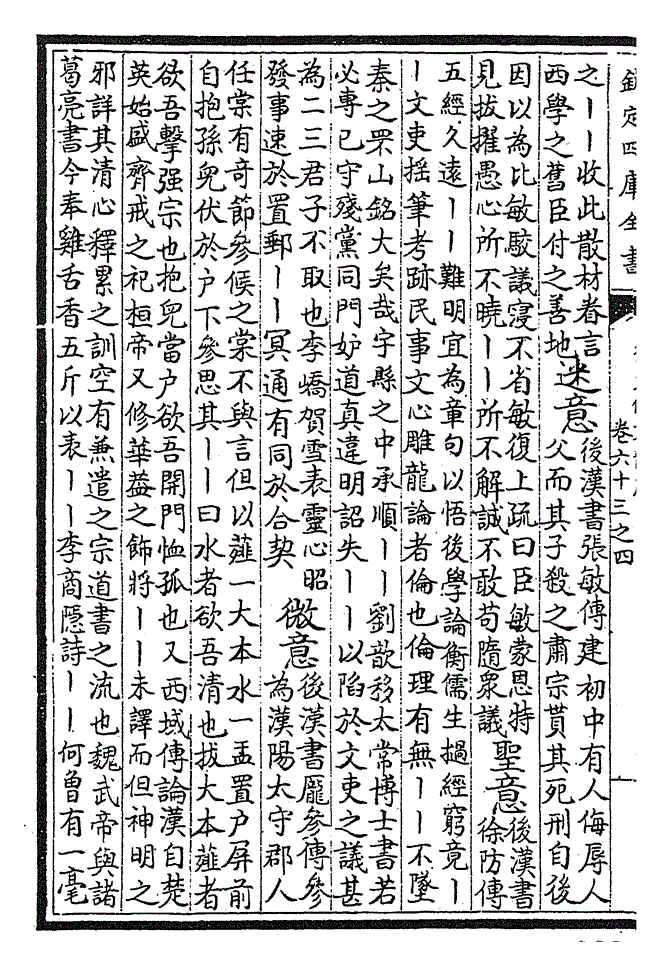 欽定四庫全書
卷六十三之四
之丨丨收此散材者言
西學之舊臣付之善地
迷意
後漢書張敏傳建初中有人侮辱人
父而其子殺之肅宗貰其死刑自後
因以為比敏駮議寢不省敏復上疏曰臣敏蒙恩特
見拔擢愚心所不曉丨丨所不解誠不敢苟隨衆議
聖意
後漢書
徐防傳
五經久遠丨丨難明宜為章句以悟後學論衡儒生擿經窮竟丨
丨文吏揺筆考跡民事文心雕龍論者倫也倫理有無丨丨不墜
秦之罘山銘大矣哉宇縣之中承順丨丨劉歆移太常博士書若
必專已守殘黨同門妒道真違明詔失丨丨以陷於文吏之議甚
為二三君子不取也李嶠賀雪表靈心昭
發事速於置郵丨丨冥通有同於合契
微意
後漢書龎參傳參
為漢陽太守郡人
任棠有竒節參候之棠不與言但以薤一大本水一盂置户屏前
自抱孫兒伏於户下參思其丨丨曰水者欲吾清也拔大本薤者
欲吾擊强宗也抱兒當户欲吾開門恤孤也又西域傳論漢自楚
英始盛齋戒之祀桓帝又修華葢之飾將丨丨未譯而但神明之
邪詳其清心釋累之訓空有兼遣之宗道書之流也魏武帝與諸
葛亮書今奉雞舌香五斤以表丨丨李商隱詩丨丨何曽有一毫